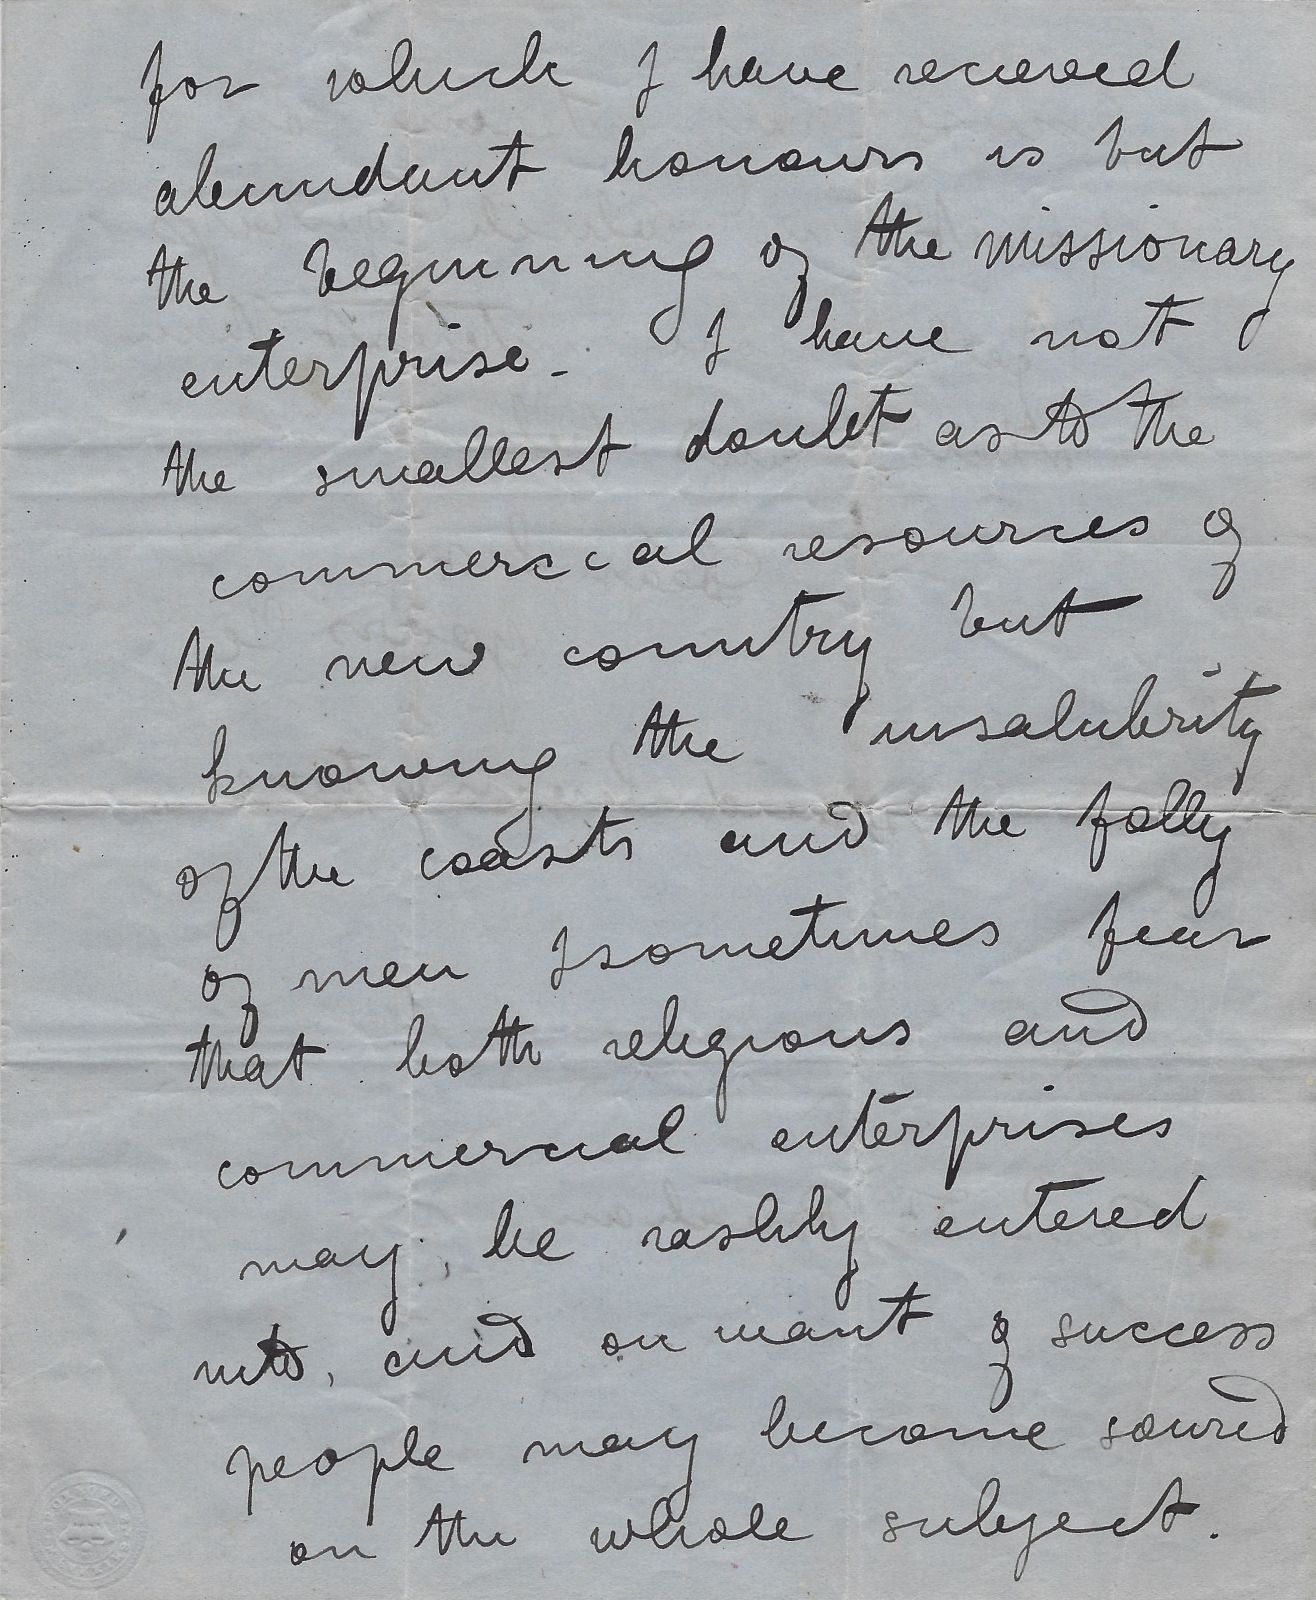 for which I have received
abundant honours is but
the beginning of the missionary
enterprise - I have not
the smallest doubt as to the
commercial resources of
the new country but
knowing the insalubrity
of the coasts and the folly
of men I sometimes fear
that both religious and
commercial enterprises
may, be rashly entered
into, and on want of success
people may become soured
on the whole subject.